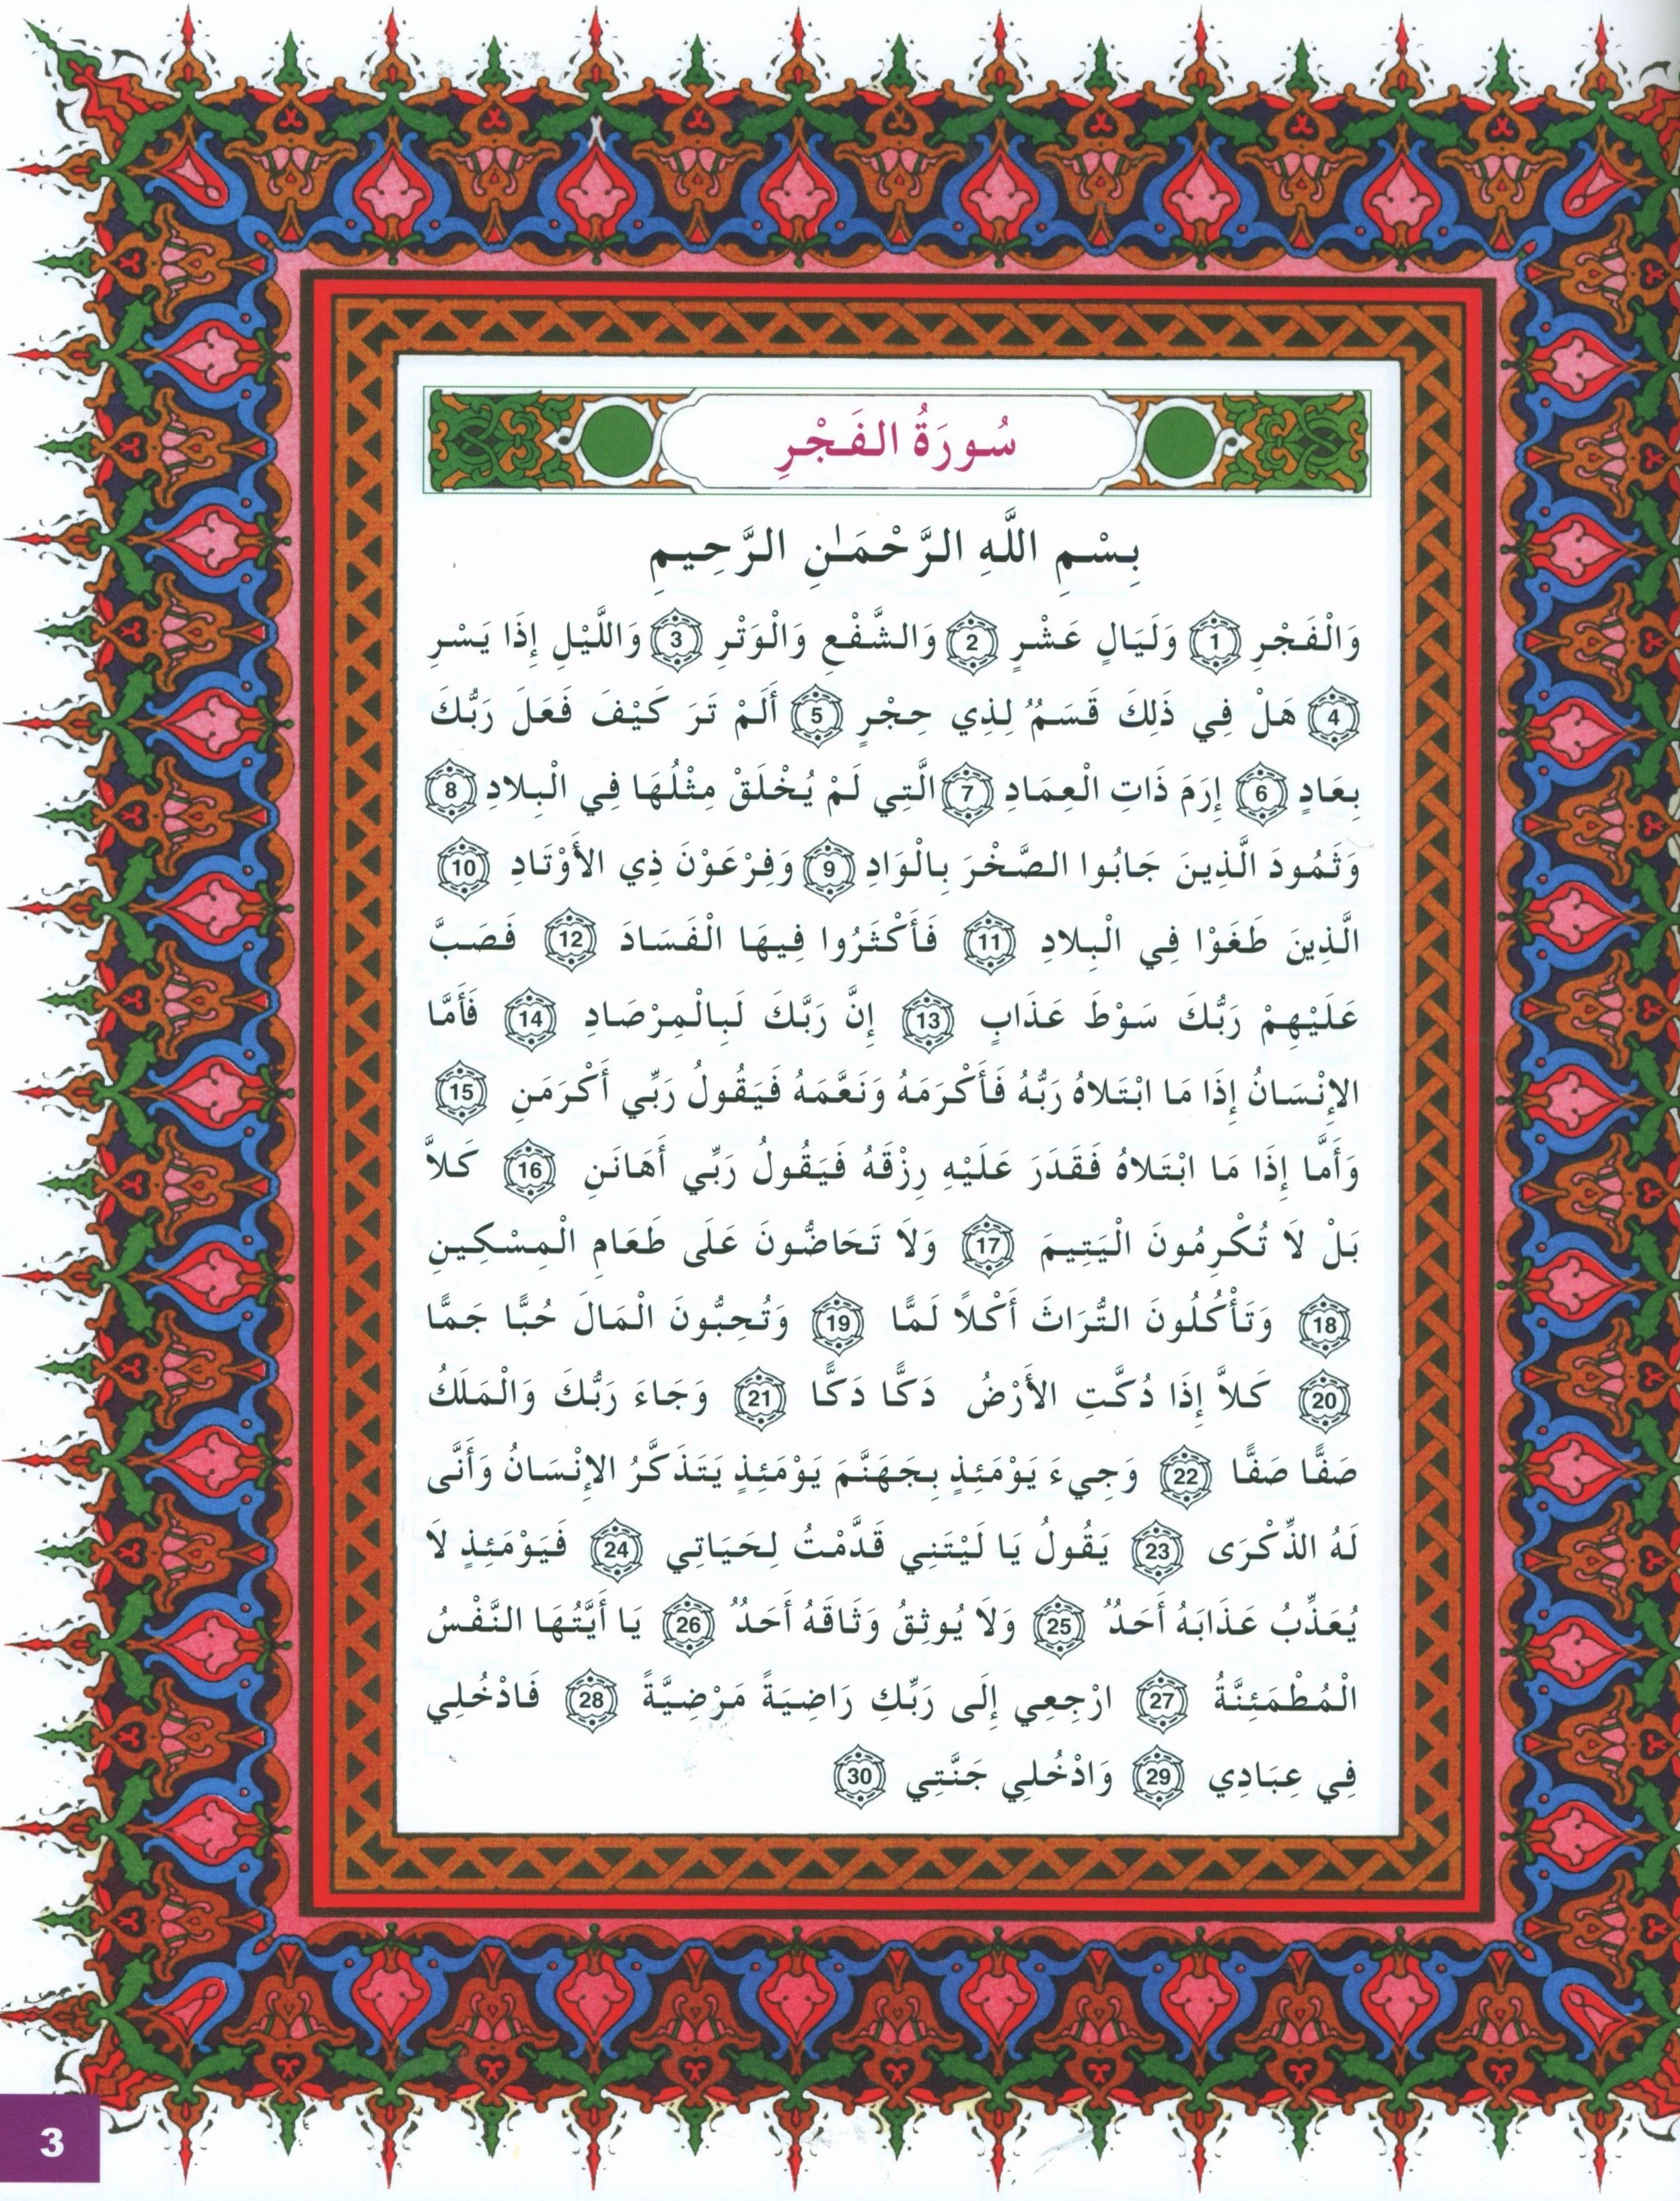 سُورَةُ الفَجْرِ
بِسْمِ اللَّهِ الرَّحْمَـٰنِ الرَّحِيمِ
وَالْفَجْرِ 1 وَلَيَالٍ عَشْرٍ 2 وَالشَّفْعِ وَالْوَتْرِ 3 وَاللَّيْلِ إِذَا يَسْرِ
4 هَلْ فِي ذَلِكَ قَسَمٌ لِذِي حِجْرٍ 5 أَلَمْ تَرَ كَيْفَ فَعَلَ رَبُّكَ
بِعَادٍ 6 إِرَمَ ذَاتِ الْعِمَادِ 7 الَّتِي لَمْ يُخْلَقْ مِثْلُهَا فِي الْبِلادِ 8
وَثَمُودَ الَّذِينَ جَابُوا الصَّخْرَ بِالْوَادِ 9 وَفِرْعَوْنَ ذِي الأَوْتَادِ 10
الَّذِينَ طَغَوْا فِي الْبِلادِ 11 فَأَكْثَرُوا فِيهَا الْفَسَادَ 12 فَصَبَّ
عَلَيْهِمْ رَبُّكَ سَوْطَ عَذَابٍ 13 إِنَّ رَبَّكَ لَبِالْمِرْصَادِ 14 فَأَمَّا
الإِنْسَانُ إِذَا مَا ابْتَلاهُ رَبُّهُ فَأَكْرَمَهُ وَنَعَّمَهُ فَيَقُولُ رَبِّي أَكْرَمَنِ 15
وَأَمَّا إِذَا مَا ابْتَلاهُ فَقَدَرَ عَلَيْهِ رِزْقَهُ فَيَقُولُ رَبِّي أَهَانَنِ 16 كَلاَّ
بَلْ لَا تُكْرِمُونَ الْيَتِيمَ 17 وَلَا تَحَاضُّونَ عَلَى طَعَامِ الْمِسْكِينِ
18 وَتَأْكُلُونَ التُّرَاثَ أَكْلاً لَمًّا 19 وَتُحِبُّونَ الْمَالَ حُبًّا جَمًّا
20 كَلاَّ إِذَا دُكَّتِ الأَرْضُ دَكًّا دَكًّا 21 وَجَاءَ رَبُّكَ وَالْمَلَكُ
صَفًّا صَفًّا 22 وَجِيءَ يَوْمَئِذٍ بِجَهَنَّمَ يَوْمَئِذٍ يَتَذَكَّرُ الإِنْسَانُ وَأَنَّى
لَهُ الذِّكْرَى 23 يَقُولُ يَا لَيْتَنِي قَدَّمْتُ لِحَيَاتِي 24 فَيَوْمَئِذٍ لَا
يُعَذِّبُ عَذَابَهُ أَحَدٌ 25 وَلَا يُوثِقُ وَثَاقَهُ أَحَدٌ 26 يَا أَيَّتُهَا النَّفْسُ
الْمُطْمَئِنَّةُ 27 ارْجِعِي إِلَى رَبِّكِ رَاضِيَةً مَرْضِيَّةً 28 فَادْخُلِي
فِي عِبَادِي 29 وَادْخُلِي جَنَّتِي 30
3